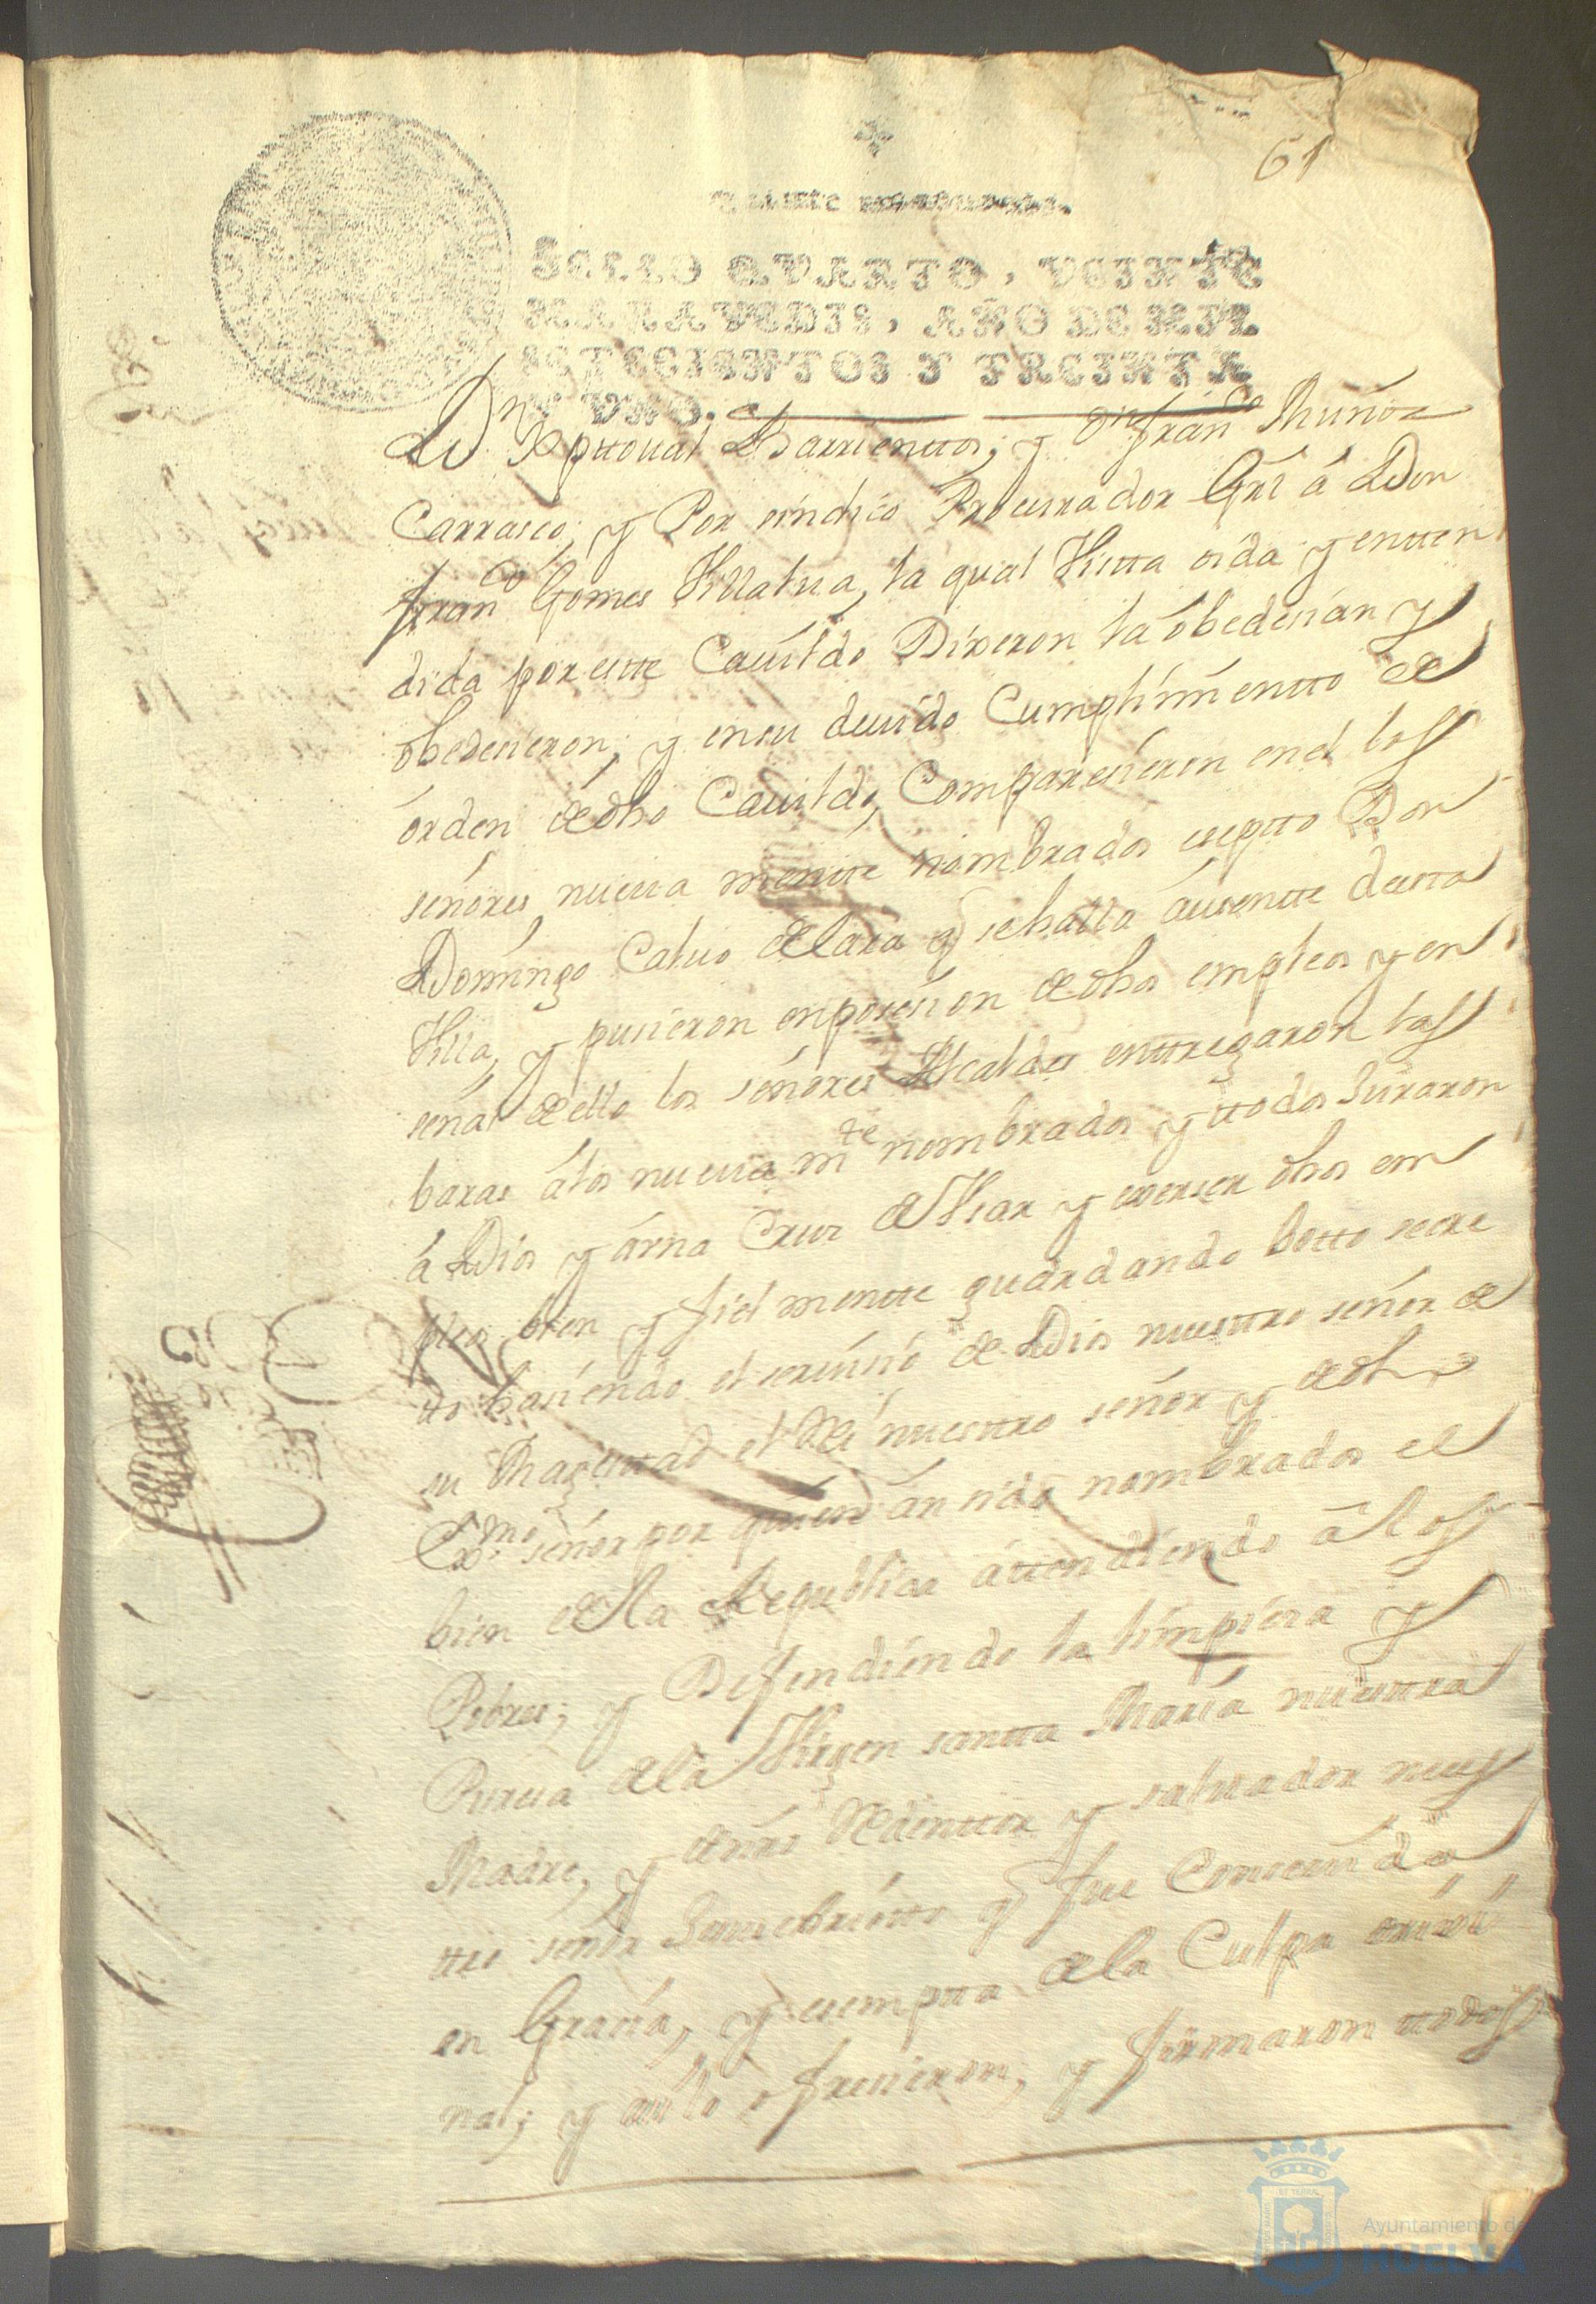 61
SELLO QVARTO, VEINTE
MARAVEDIS, AÑO DE MIL
SETECIENTOS Y TREINTA
Y VNO.
Dn Xptoual Barrienttos; y Dn Franco Muñoz
Carrasco; y Por sindico Procurador Grl â Don
Franco Gomes Villalua, la qual Vistta oida y entten
dida por estte Cauildo Dixeron la obedesian y
obedesieron; y en su deuido Cumplimientto de
orden de dho Cauildo, Comparesieron en el los
señores nueua mentte nombrados eseptto Don
Domingo Caluo de lara q se hallo áusentte destta
Villa, y pusieron en posesion de dhos empleos y en
señal de ello los señores Alcaldes enttregaron las
baras â los nueuamte nombrados y ttodos Juraron
â Dios y âvna Cruz de Vsar y exerser dhos em
pleos bien y fiel mentte guardando botto secre
tto hasiendo el seruisio de Dios nuesttro señor de
su Magesttad el Rei nuesttro señor y de dho
Exmo señor por quien ân sido nombrados el
bien de la Republica attendiendo â los
Pobres; y Defendiendo la limpiesa y
Puresa de la Virgen santta Maria nuesttra
Madre, y de nro Redenttor y saluador nues
ttro señor Jesuchristto q fue Consecuida
en Grasia, y esemptta de la Culpa origi
nal; y asi lo ofresieron; y firmaron ttodos
Ayuntamiento de
HUELVA